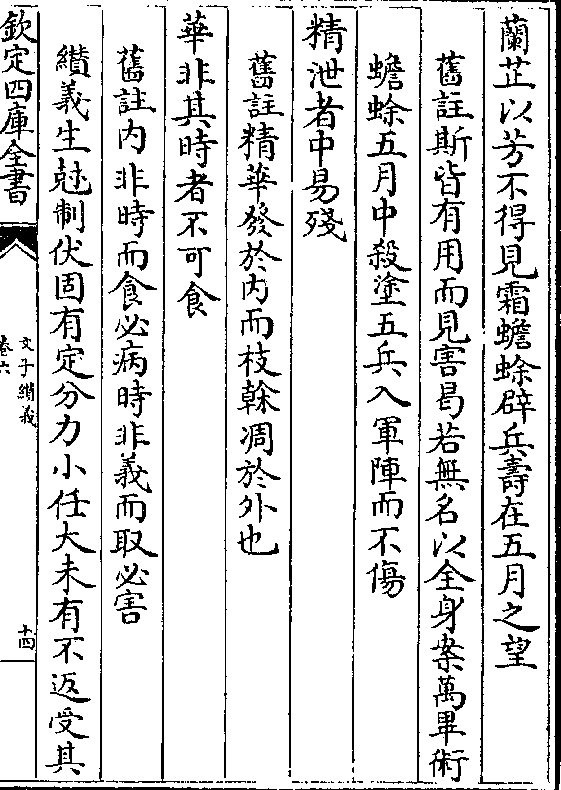 蘭芷以芳不得見霜蟾蜍辟兵壽在五月之望
舊註斯皆有用而見害曷若無名以全身案萬畢術
蟾蜍五月中殺塗五兵入軍陣而不傷
精泄者中易殘
舊註精華發於内而枝榦凋於外也
華非其時者不可食
舊註内非時而食必病時非義而取必害
纉義生尅制伏固有定分力小任大未有不返受其
欽定四庫全書
文子纉義
卷六
十四